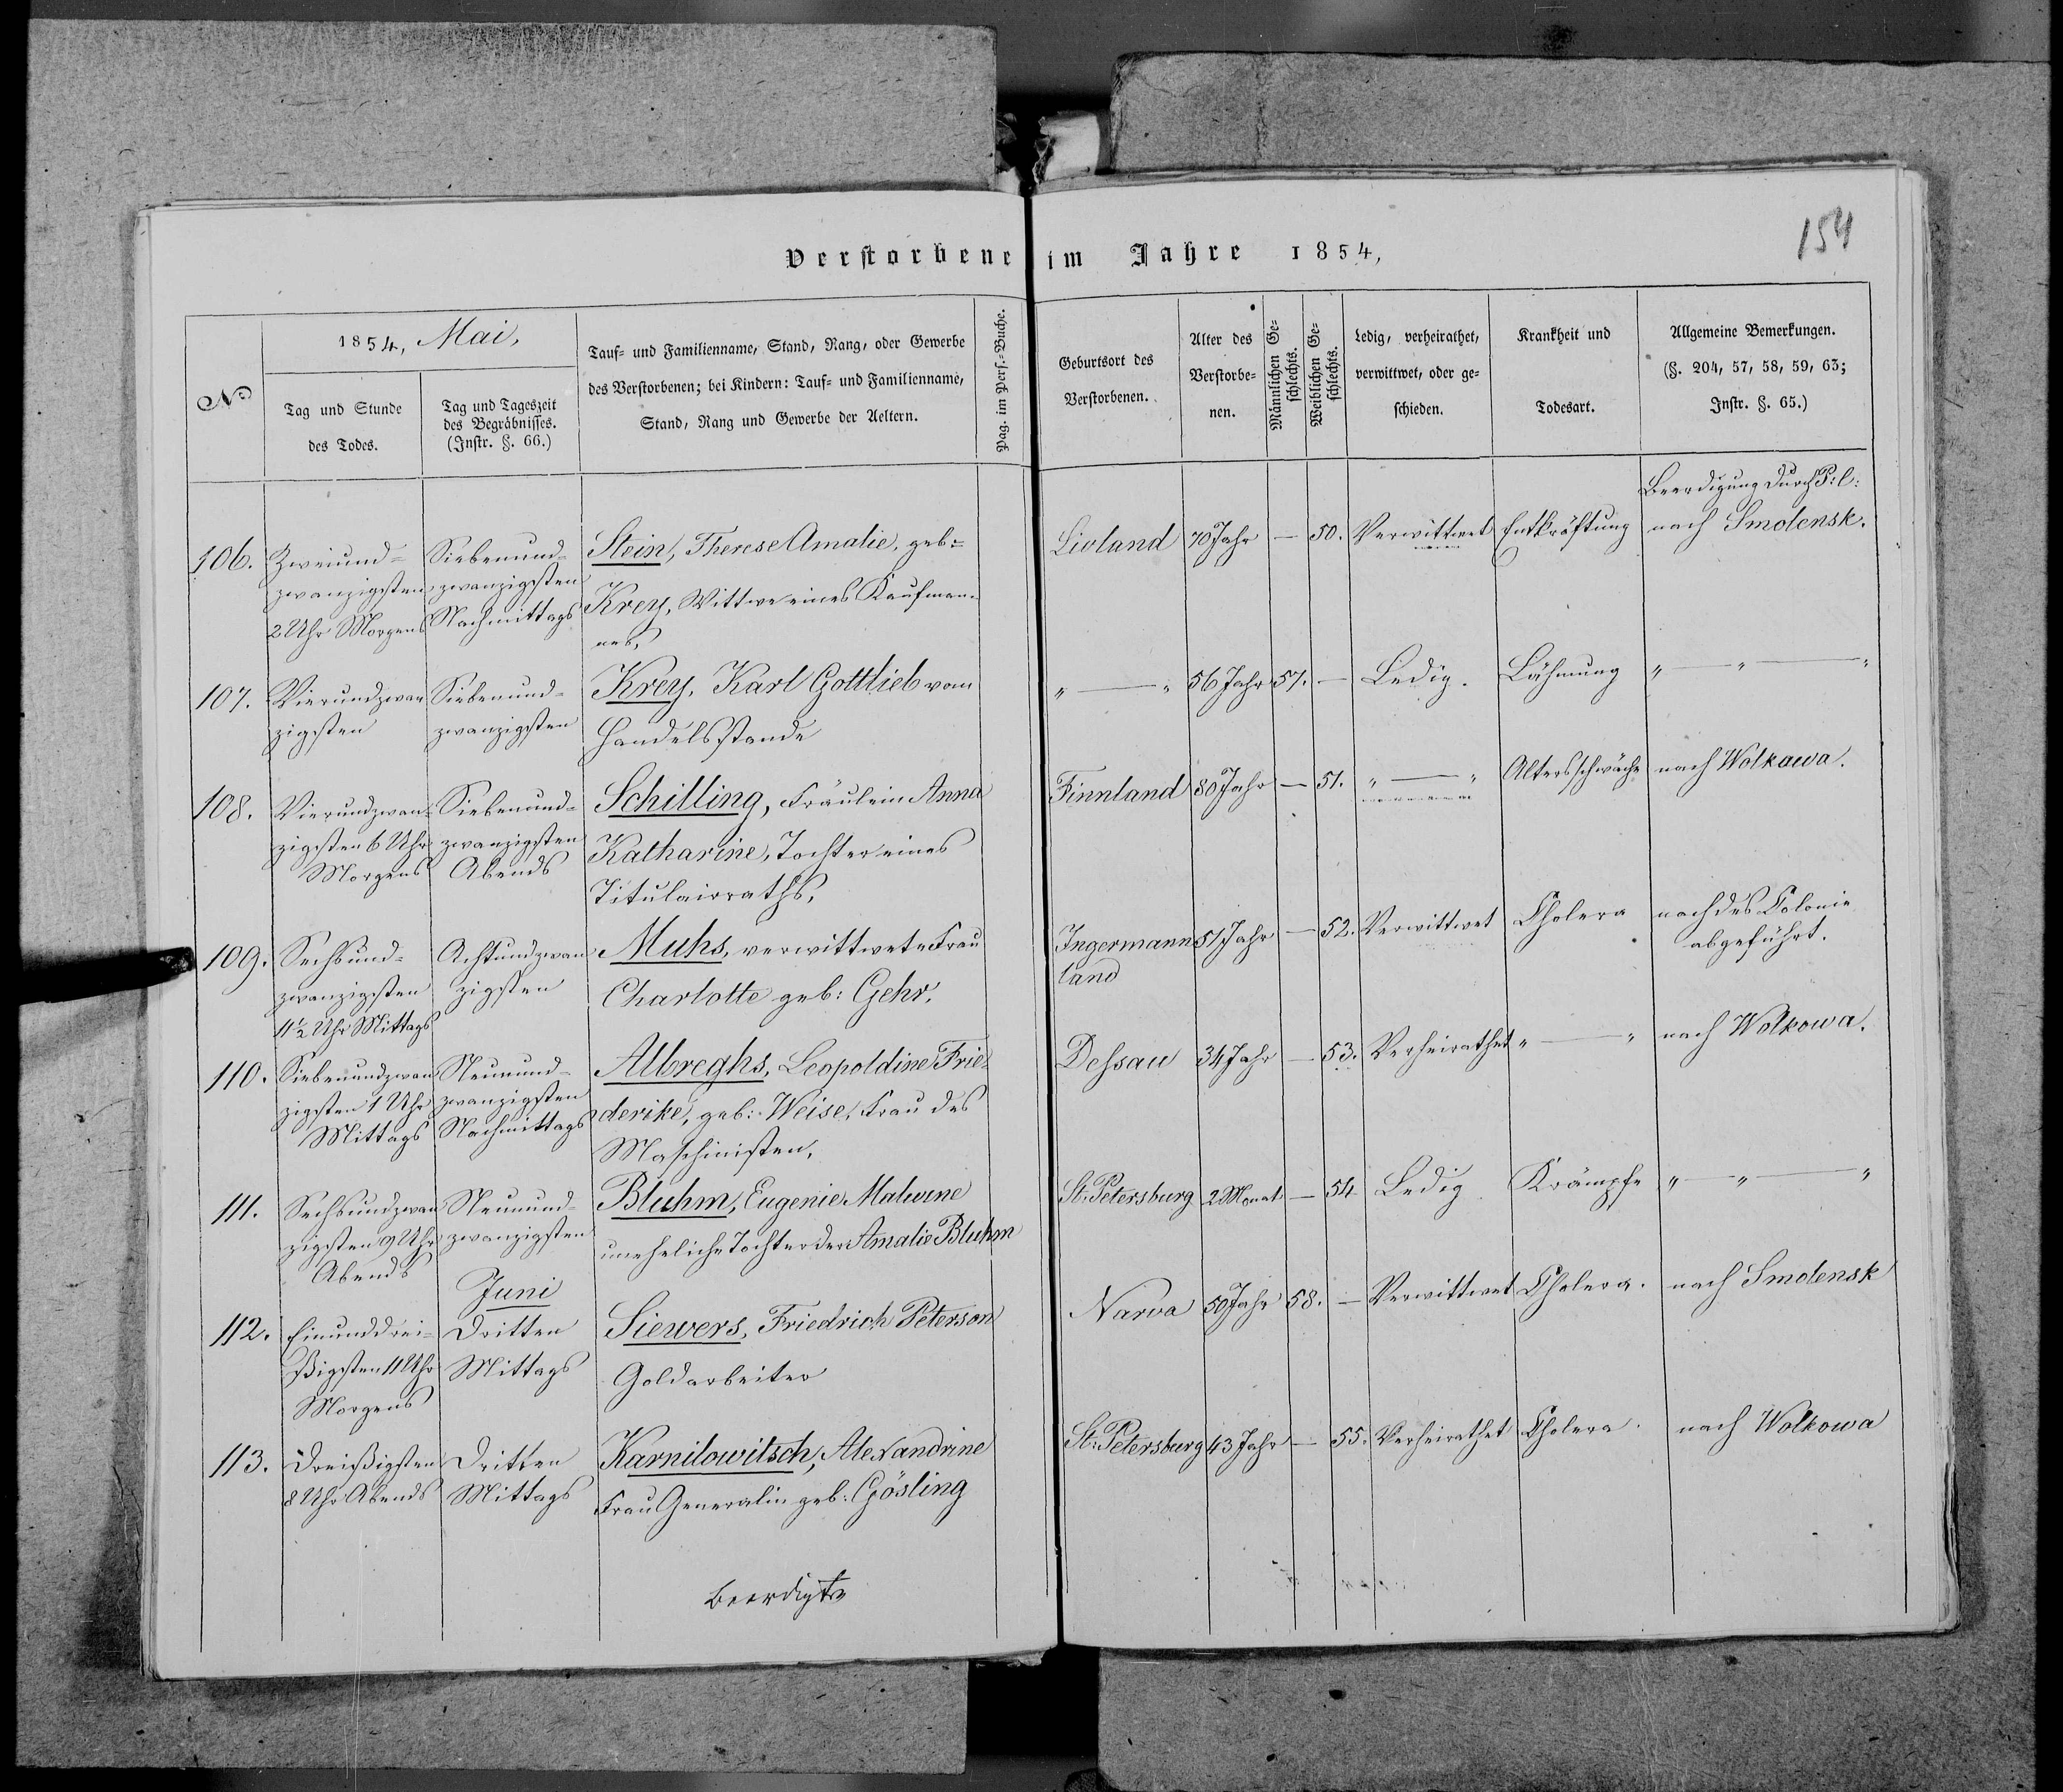 154
Verstorbene im Jahre 1854,
No
1854, Mai,
Tag und Stunde
des Todes.
Tag und Tageszeit
des Begräbnisses.
(Instr. §. 66.)
Tauf- und Familienname, Stand, Rang, oder Gewerbe
des Verstorbenen; bei Kindern: Tauf- und Familienname,
Stand, Rang und Gewerbe der Aeltern.
Pag. im Pers.-Buche.
Geburtsort des
Verstorbenen.
Alter des
Verstorbe-
nen.
Männlichen Ge-
schlechts.
Weiblichen Ge-
schlechts.
Ledig, verheirathet,
verwittwet, oder ge-
schieden.
Krankheit und
Todesart.
Allgemeine Bemerkungen.
(§. 204, 57, 58, 59, 63;
Instr. §. 65.)
106.
Zweiund-
zwanzigsten
2 Uhr Morgens
Siebenund-
zwanzigsten
Nachmittags
Stein, Therese Amalie, geb:
Krey, Wittwe eines Kaufman-
nes,
Livland
70 Jahr
—
50.
Verwittwet
Entkräftung
Beerdigung durch P:l:
nach Smolensk.
107.
Vierundzwan
zigsten
Siebenund-
zwanzigsten
Krey, Karl Gottlieb vom
Handelsstande
" — "
56 Jahr
57.
—
Ledig.
Lähmung
" — " — "
108.
Vierundzwan-
zigsten 6 Uhr
Morgens
Siebenund-
zwanzigsten
Abends
Schilling, Fräulein Anna
Katharine, Tochter eines
Titulairraths,
Finnland
80 Jahr
—
51.
" — "
Altersschwäche
nach Wolkawa.
109.
Sechsund-
zwanzigsten
11½ Uhr Mittags
Achtundzwan
zigsten
Muhs, verwittwete Frau
Charlotte geb: Gehr.
Ingermann
land
51 Jahr
—
52.
Verwittwet
Cholera
nach des Colonie
abgeführt.
110.
Siebenundzwan
zigsten 1 Uhr
Mittags
Neunund-
zwanzigsten
Nachmittags
Albreghs, Leopoldine Frie-
derike, geb: Weise, Frau des
Maschinisten,
Dessau
34 Jahr
—
53.
Verheirathet
" — "
nach Wolkowa.
111.
Sechsundzwan
zigsten 9 Uhr
Abends
Neunund-
zwanzigsten
Bluhm, Eugenie Malwine
uneheliche Tochter der Amalie Bluhm
St. Petersburg
2 Monat
—
54
Ledig.
Krämpfe
" — " — "
112.
Einunddrei-
ßigsten 11 Uhr
Morgens
Juni
Dritten
Mittags
Siewers, Friedrich Peterson
Goldarbeiter
Narva
50 Jahr
58.
—
Verwittwet
Cholera.
nach Smolensk
113.
Dreißigsten
8 Uhr Abends
Dritten
Mittags
Karnilowitsch, Alexandrine
Frau Generalin geb: Gösling
St: Petersburg
43 Jahr
—
55.
Verheirathet
Cholera.
nach Wolkowa
Beerdigte